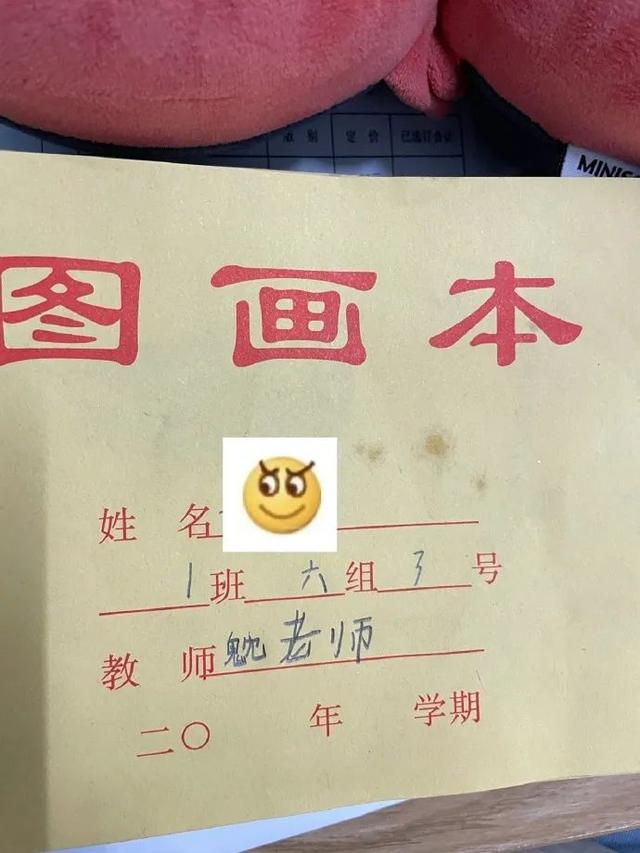 定 价
MINIS
图画本
姓 名
1班六组3号
教 师 老师
二〇 年 学期